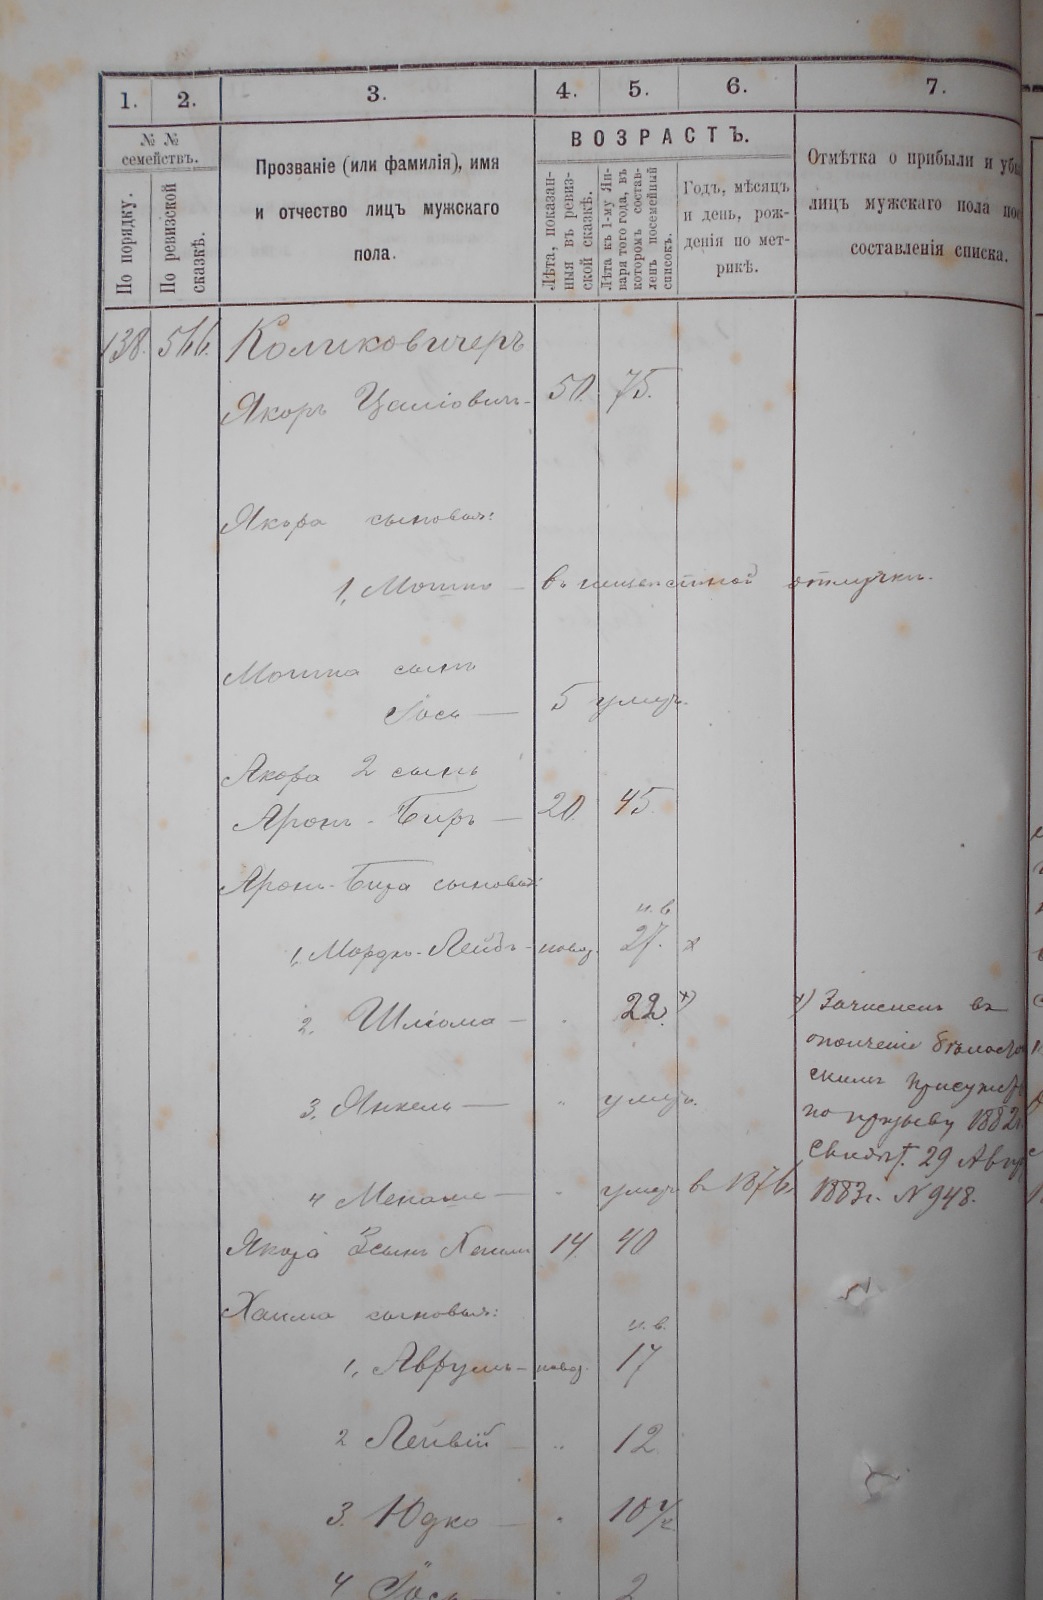 1. 2. 3. 4. 5. 6. 7.
№ №
семействъ.
По порядку.
По ревизской
сказкѣ.
Прозваніе (или фамилія), имя
и отчество лицъ мужскаго
пола.
ВОЗРАСТЪ.
Лѣта, показан-
ныя въ ревиз-
ской сказкѣ.
Лѣта къ 1-му Ян-
варя того года, въ
которомъ состав-
ленъ посемейный
списокъ.
Годъ, мѣсяцъ
и день, рож-
денія по мет-
рикѣ.
Отмѣтка о прибыли и убы
лицъ мужскаго пола пос
составленія списка.
138. 566. Коликовичеръ
Якоръ Цаліовичъ 50. 75.
Якора сыновья:
1, Мошко — въ неизвѣстной отлучкѣ.
Мошка сынъ
Іось — 5 умеръ.
Якора 2 сынъ
Аронъ-Беръ — 20. 45.
Аронъ-Бера сыновья:
н. в.
1, Мордко-Лейбъ - новор. 27. x
2. Шліома — " 22. x)
3, Янкель — " умеръ.
4 — " умеръ въ 1876.
x) Зачисленъ въ
ополченіе
скимъ
по призыву 1882г
свидѣт. 29 Авг
1883г. № 948.
Якора 3 сынъ 14. 40
Хаима сыновья:
н. в.
1, Аврумъ — новор. 17
2 Лейвій — " 12
3. Юдко — " 10 1/2
4 Іось — " 2